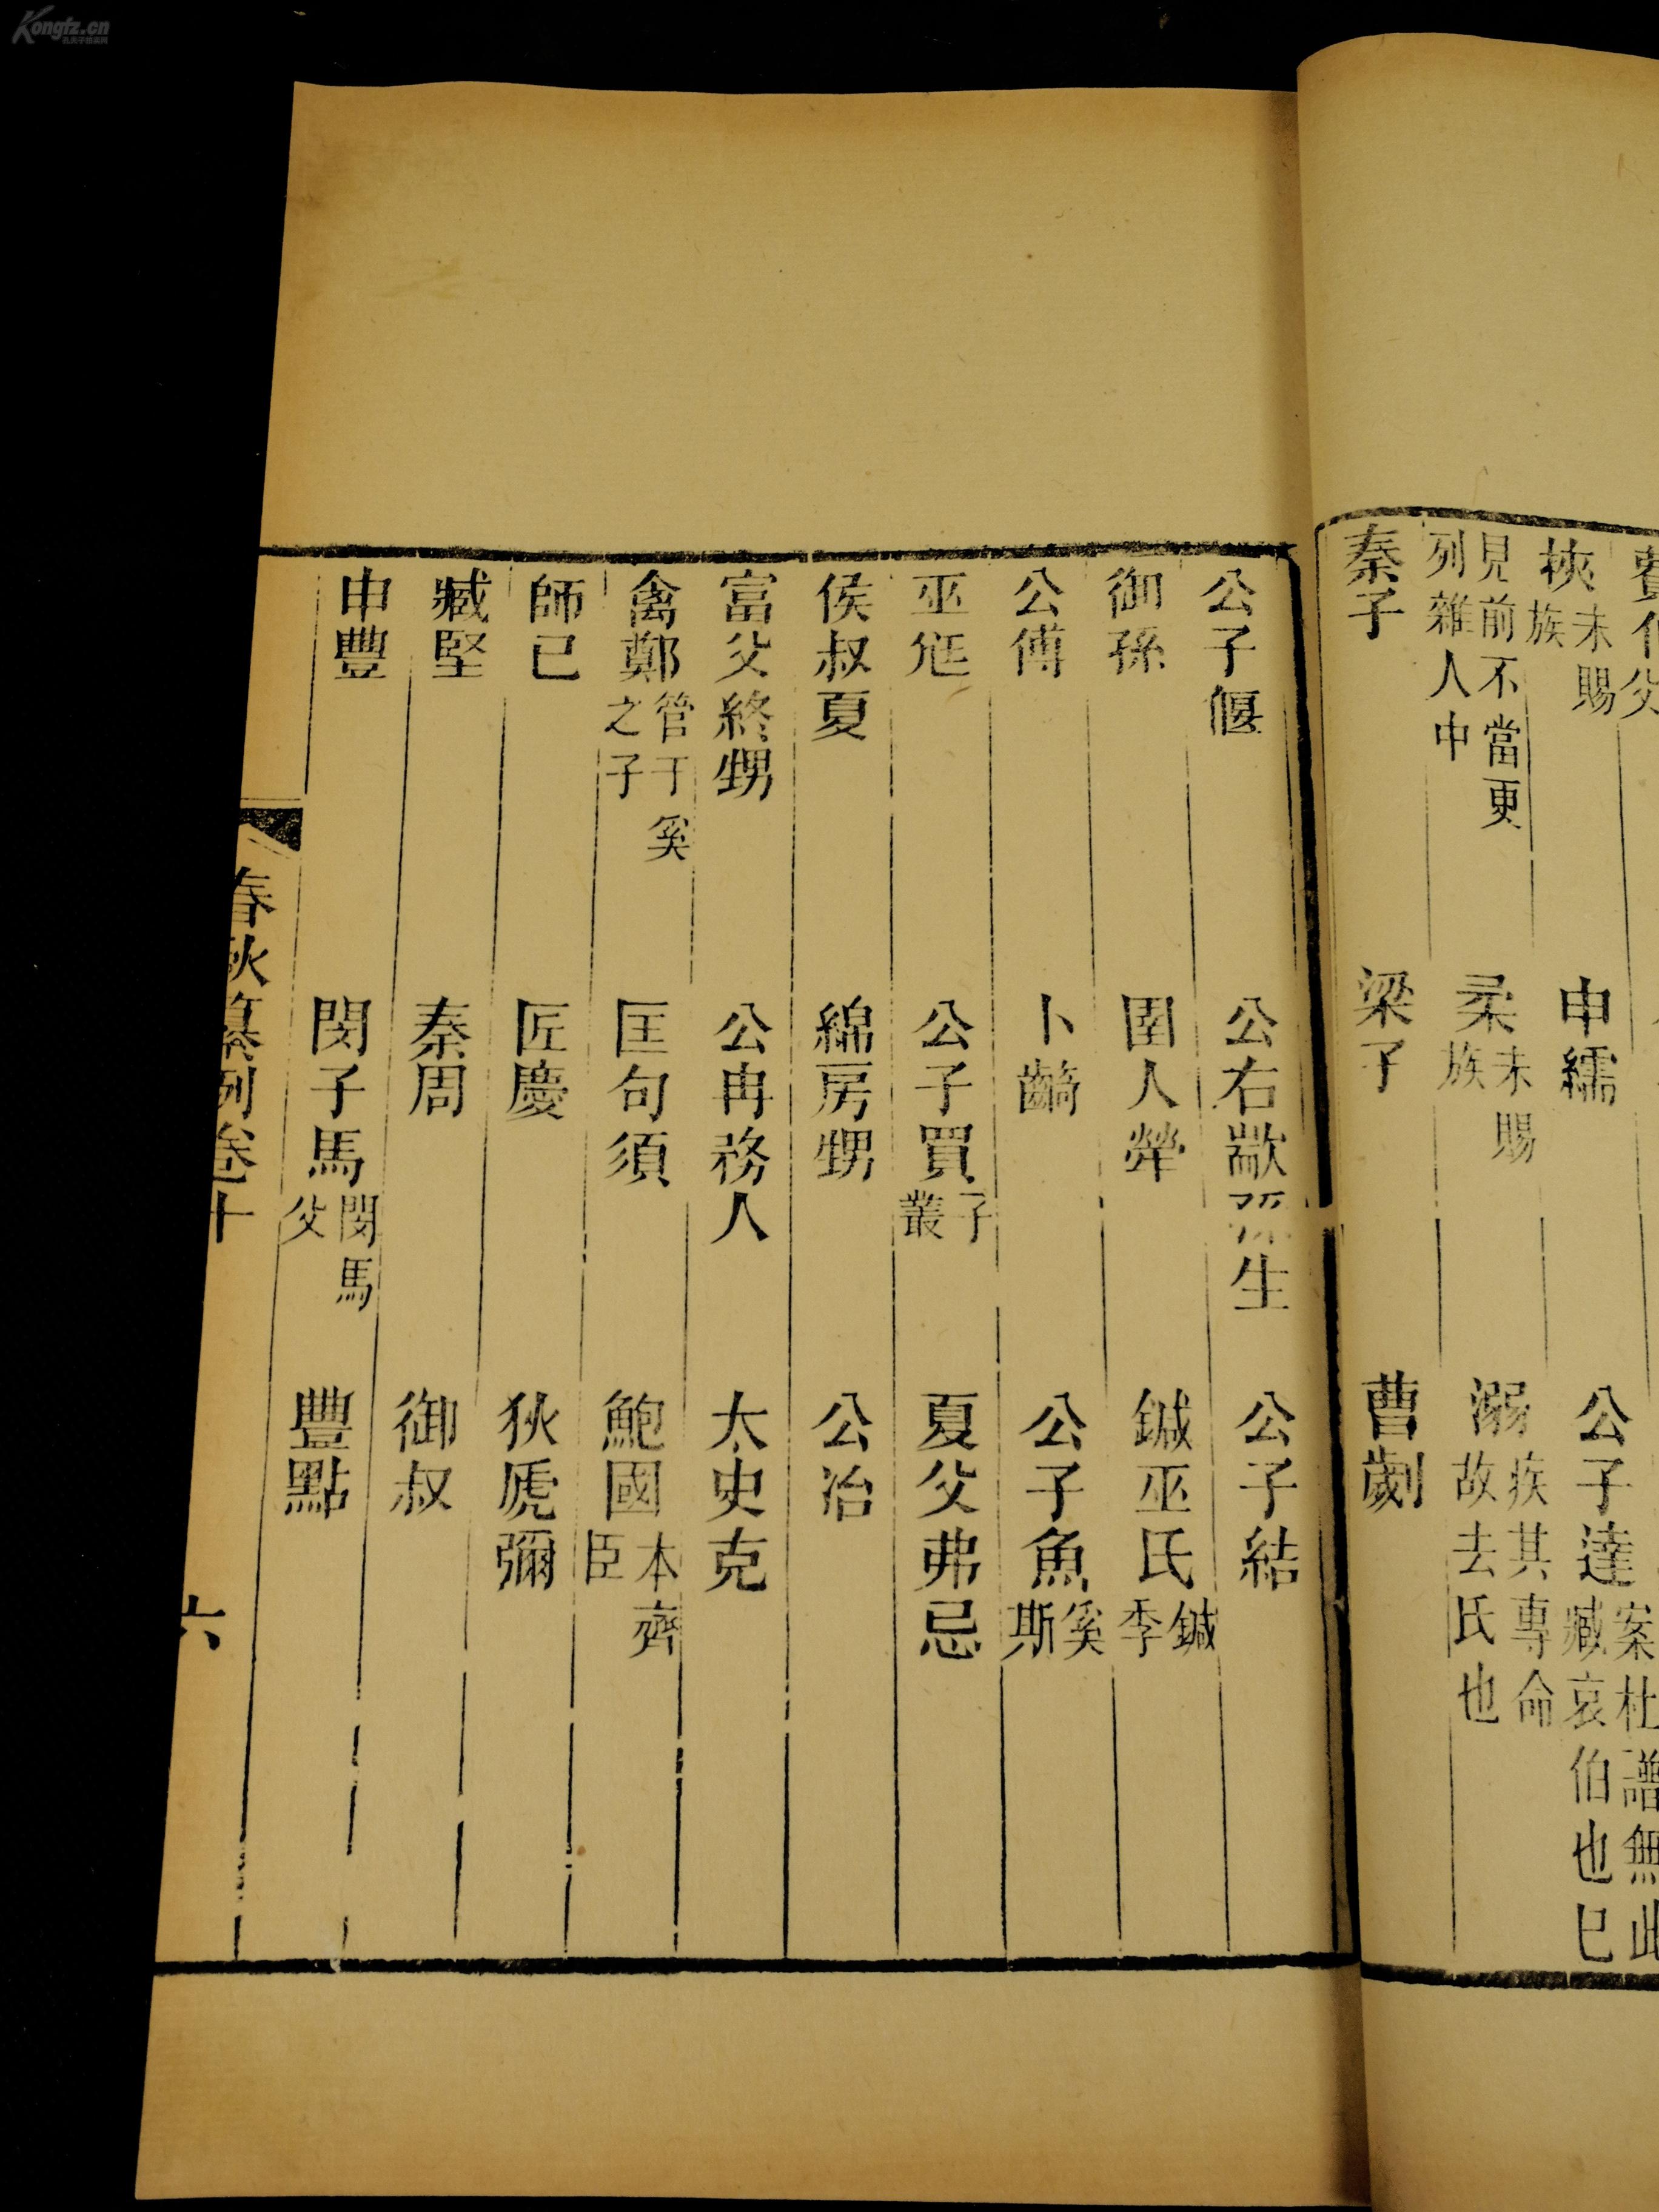 Kongfz.cn
申繻 公子達案杜譜無此臧哀伯也已
挾未賜族 柔未賜族 溺疾其專命故去氏也
見前不當更列雜人中
秦子 梁子 曹劌
公子偃 公右歂孫生 公子結
御孫 圉人犖 鍼巫氏鍼季
公傅 卜齮 公子魚奚斯
巫尫 公子買子叢 夏父弗忌
侯叔夏 綿房甥 公冶
富父終甥 公冉務人 太史克
禽鄭管于奚之子 匡句須 鮑國本齊臣
師已 匠慶 狄虒彌
臧堅 秦周 御叔
申豐 閔子馬閔馬父 豐點
春秋纂例卷十 六